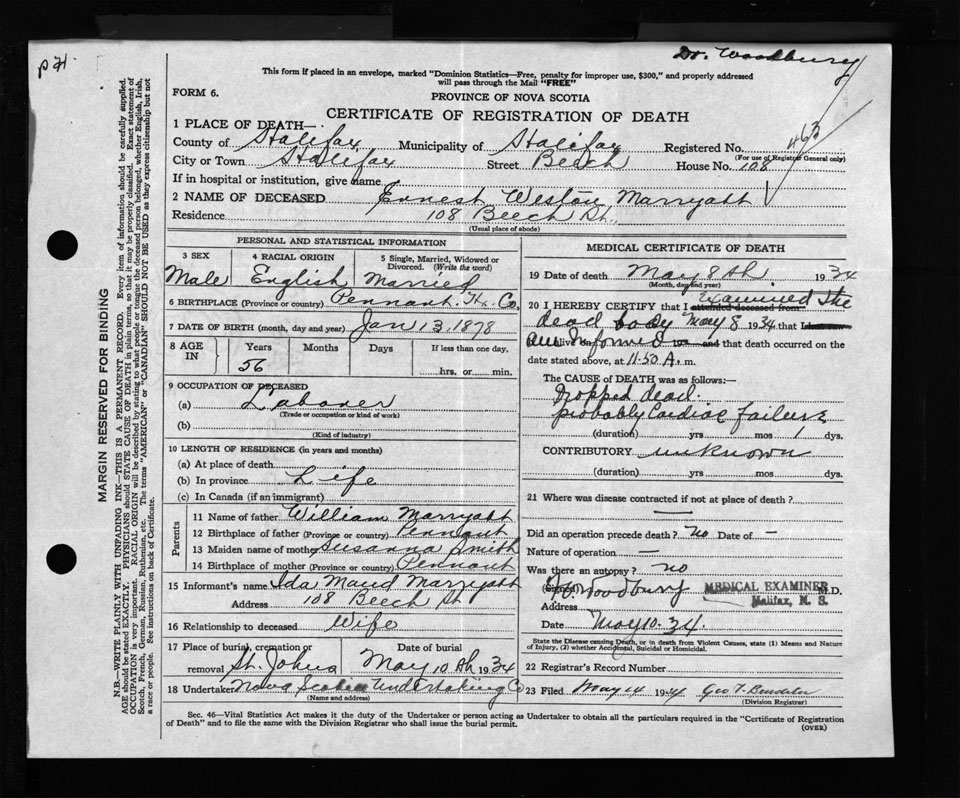 Dr. Woodbury
This form if placed in an envelope, marked "Dominion Statistics—Free, penalty for improper use, $300," and properly addressed
will pass through the Mail "FREE"
FORM 6.
PROVINCE OF NOVA SCOTIA
CERTIFICATE OF REGISTRATION OF DEATH
463
1 PLACE OF DEATH—
County of Halifax Municipality of Halifax Registered No.
(For use of Registrar General only)
City or Town Halifax Street Beech House No. 108
If in hospital or institution, give name
2 NAME OF DECEASED Ernest Weston Marryatt
Residence 108 Beech St.
(Usual place of abode)
PERSONAL AND STATISTICAL INFORMATION
3 SEX 4 RACIAL ORIGIN 5 Single, Married, Widowed or Divorced. (Write the word)
Male English Married
6 BIRTHPLACE (Province or country) Pennant. Hx. Co.
7 DATE OF BIRTH (month, day and year) Jan 13, 1878
8 AGE IN Years Months Days If less than one day,
56 hrs. or min.
9 OCCUPATION OF DECEASED
(a) Laborer
(Trade or occupation or kind of work)
(b)
(Kind of industry)
10 LENGTH OF RESIDENCE (in years and months)
(a) At place of death
(b) In province Life
(c) In Canada (if an immigrant)
Parents
11 Name of father William Marryatt
12 Birthplace of father (Province or country) Pennant
13 Maiden name of mother Susanna Smith
14 Birthplace of mother (Province or country) Pennant
15 Informant's name Ida Maud Marryatt
Address 108 Beech St
16 Relationship to deceased Wife
17 Place of burial, cremation or removal Date of burial
St. Johns May 10th 1934
18 Undertaker Nova Scotia Undertaking Co
(Name and address)
MEDICAL CERTIFICATE OF DEATH
19 Date of death May 8th 1934
(Month, day and year)
20 I HEREBY CERTIFY that I attended deceased from Examined the
dead body May 8 1934 that I last saw
am informed and that death occurred on the
date stated above, at 11.50 A. m.
The CAUSE of DEATH was as follows:—
Dropped dead.
probably Cardiac failure
(duration) yrs mos 1 dys.
CONTRIBUTORY unknown
(duration) yrs mos dys.
21 Where was disease contracted if not at place of death?
—
Did an operation precede death? no Date of —
Nature of operation —
Was there an autopsy? no
(Signed) Woodbury MEDICAL EXAMINER M.D.
Address Halifax, N. S.
Date May 10. 34.
State the Disease causing Death, or in death from Violent Causes, state (1) Means and Nature
of Injury, (2) whether Accidental, Suicidal or Homicidal.
22 Registrar's Record Number
23 Filed May 14 1934
(Division Registrar)
Sec. 46—Vital Statistics Act makes it the duty of the Undertaker or person acting as Undertaker to obtain all the particulars required in the "Certificate of Registration
of Death" and to file the same with the Division Registrar who shall issue the burial permit.
(OVER)
MARGIN RESERVED FOR BINDING
N.B.—WRITE PLAINLY WITH UNFADING INK—THIS IS A PERMANENT RECORD. Every item of information should be carefully supplied.
AGE should be stated EXACTLY. PHYSICIANS should STATE CAUSE OF DEATH in plain terms, so that it may be properly classified. Exact statement of
OCCUPATION is very important. RACIAL ORIGIN will be described by stating to what people or tongue the deceased person belonged, whether English, Irish,
Scotch, French, German, Russian, Ruthenian, etc. The terms "AMERICAN" or "CANADIAN" SHOULD NOT BE USED as they express citizenship but not
a race or people. See instructions on back of Certificate.